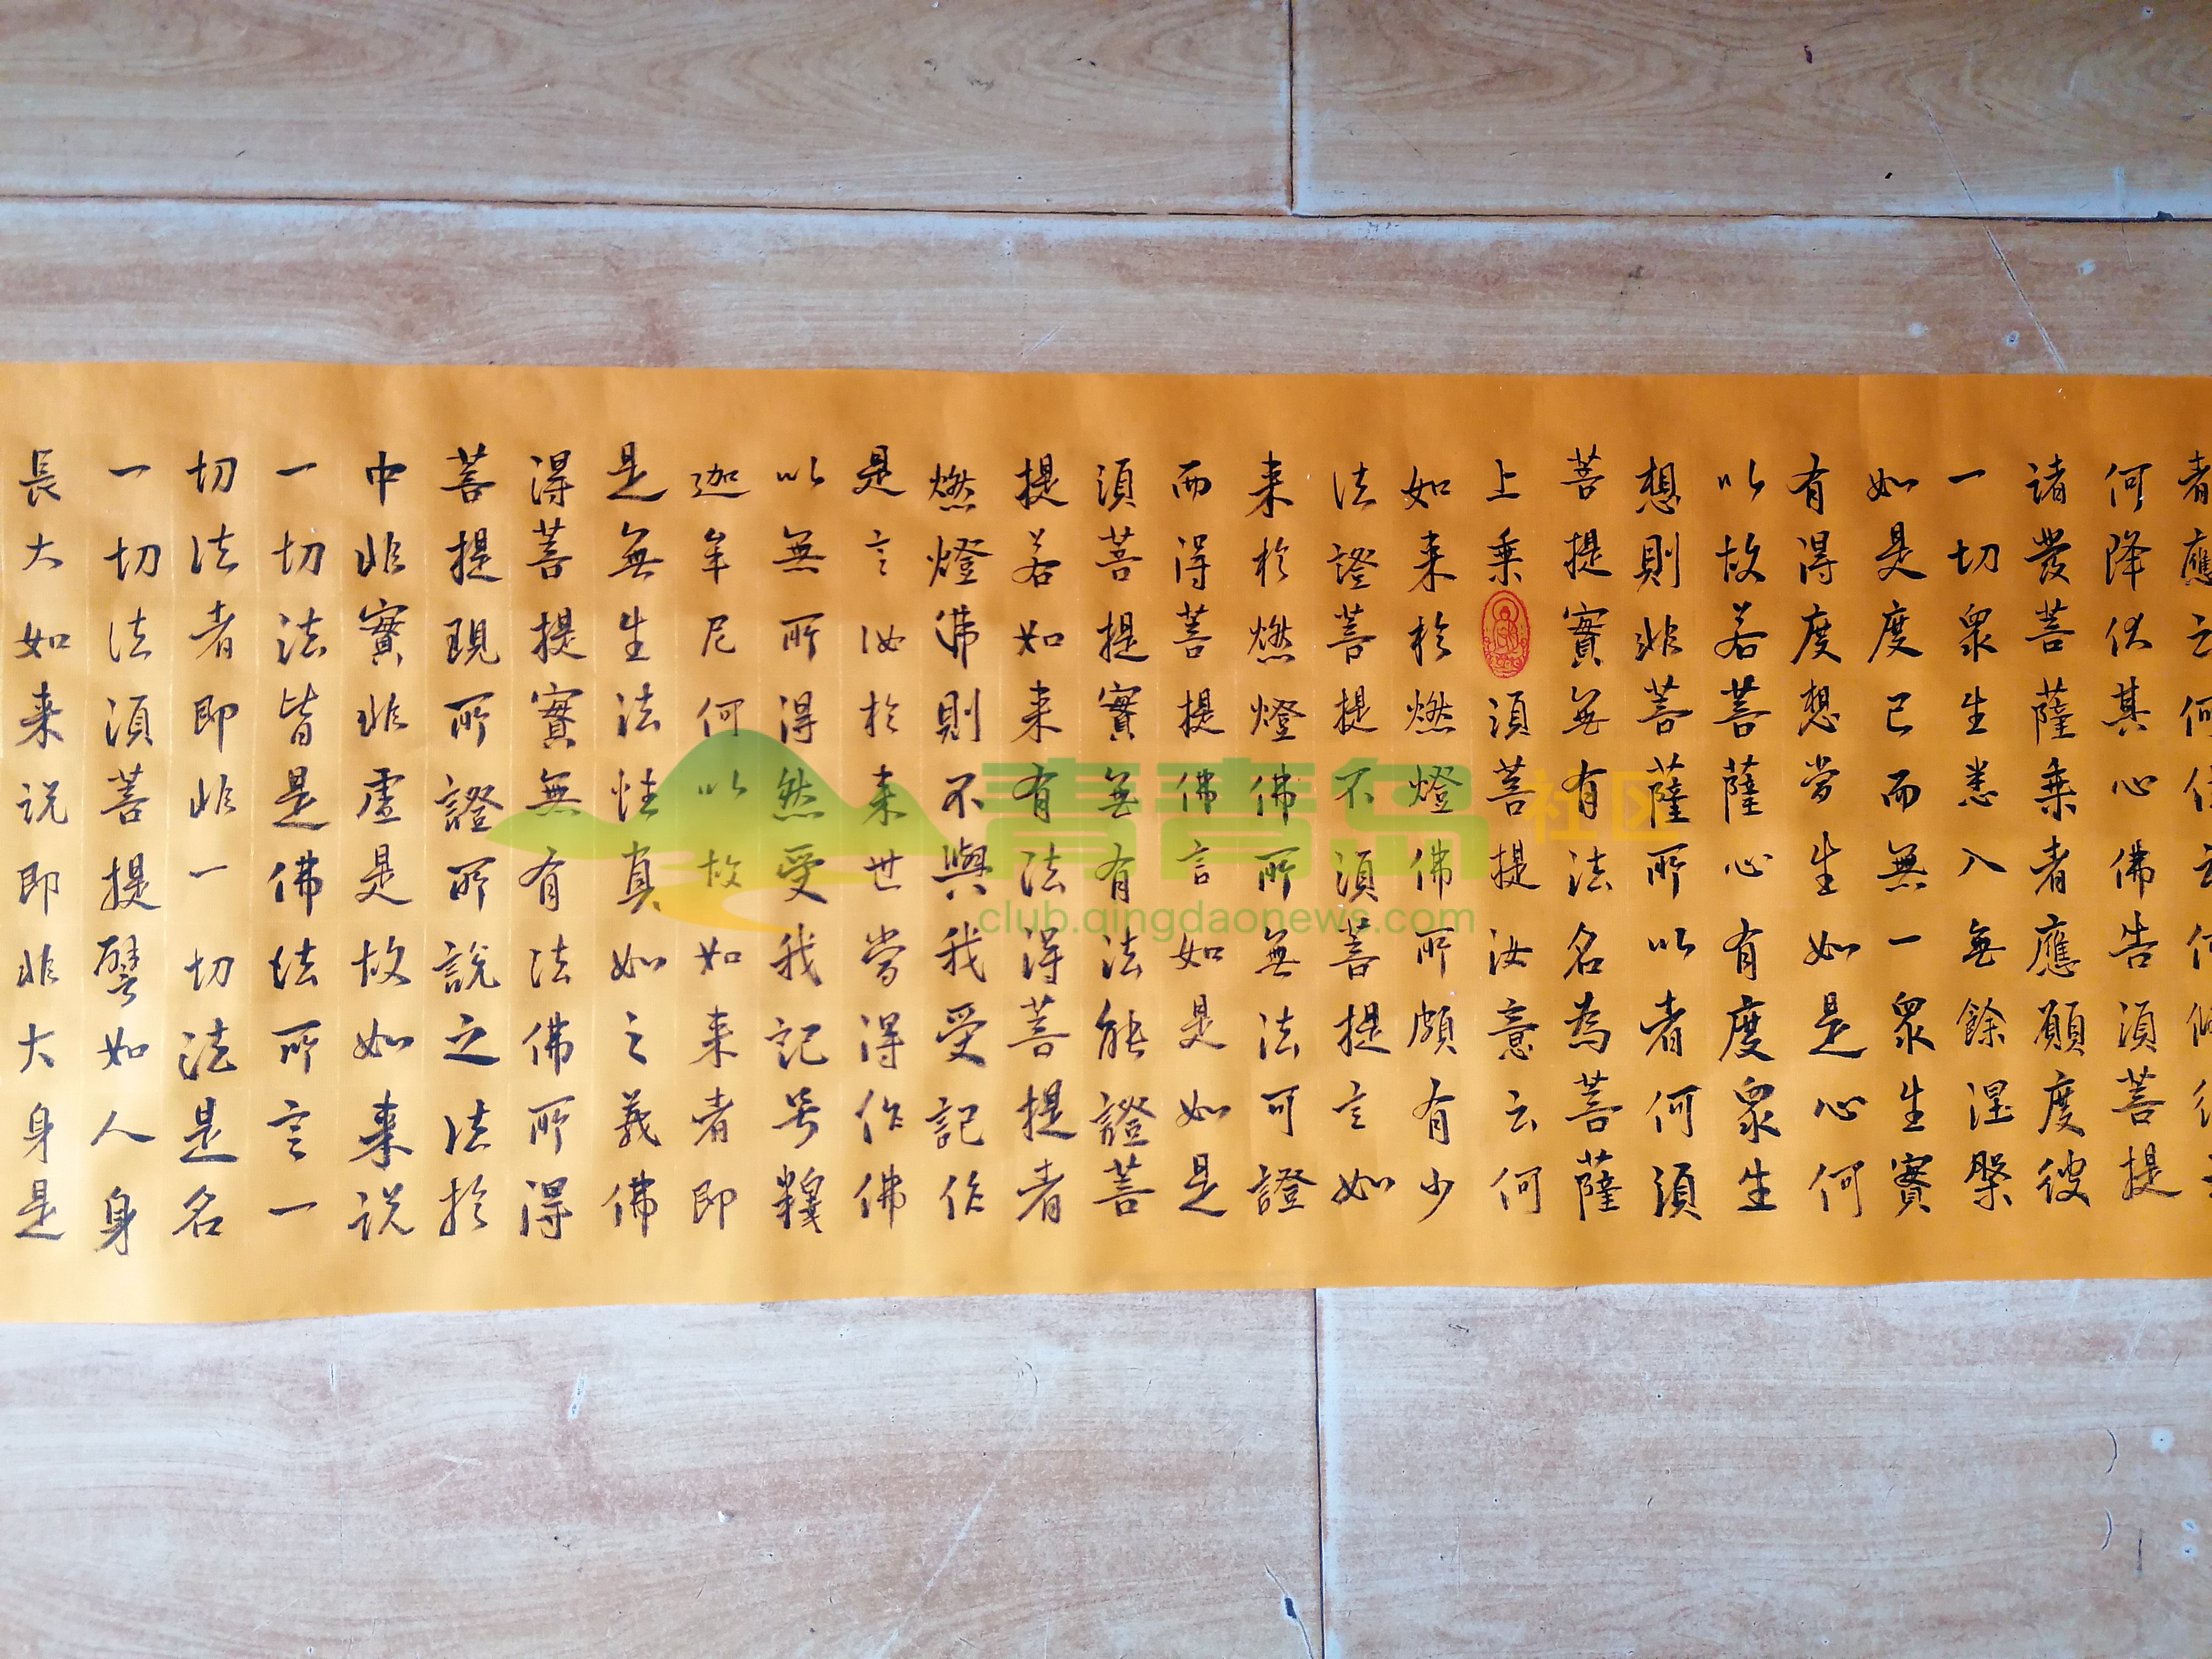 者應云何住云何修行云
何降伏其心佛告須菩提
諸發菩薩乘者應願度彼
一切眾生悉入無餘涅槃
如是度已而無一眾生實
有得度想當生如是心何
以故若菩薩心有度眾生
想則非菩薩所以者何須
菩提實無有法名為菩薩
上乘須菩提汝意云何
如来於燃燈佛所頗有少
法證菩提不須菩提言如
来於燃燈佛所無法可證
而得菩提佛言如是如是
須菩提實無有法能證菩
提若如来有法得菩提者
燃燈佛則不與我受記作
是言汝於来世當得作佛
以無所得然受我記号釋
迦牟尼何以故如来者即
是無生法性真如之義佛
得菩提實無有法佛所得
菩提現所證所說之法於
中非實非虛是故如来説
一切法皆是佛法所言一
切法者即非一切法是名
一切法須菩提譬如人身
長大如来説即非大身是
青青岛社区
club.qingdaonews.com